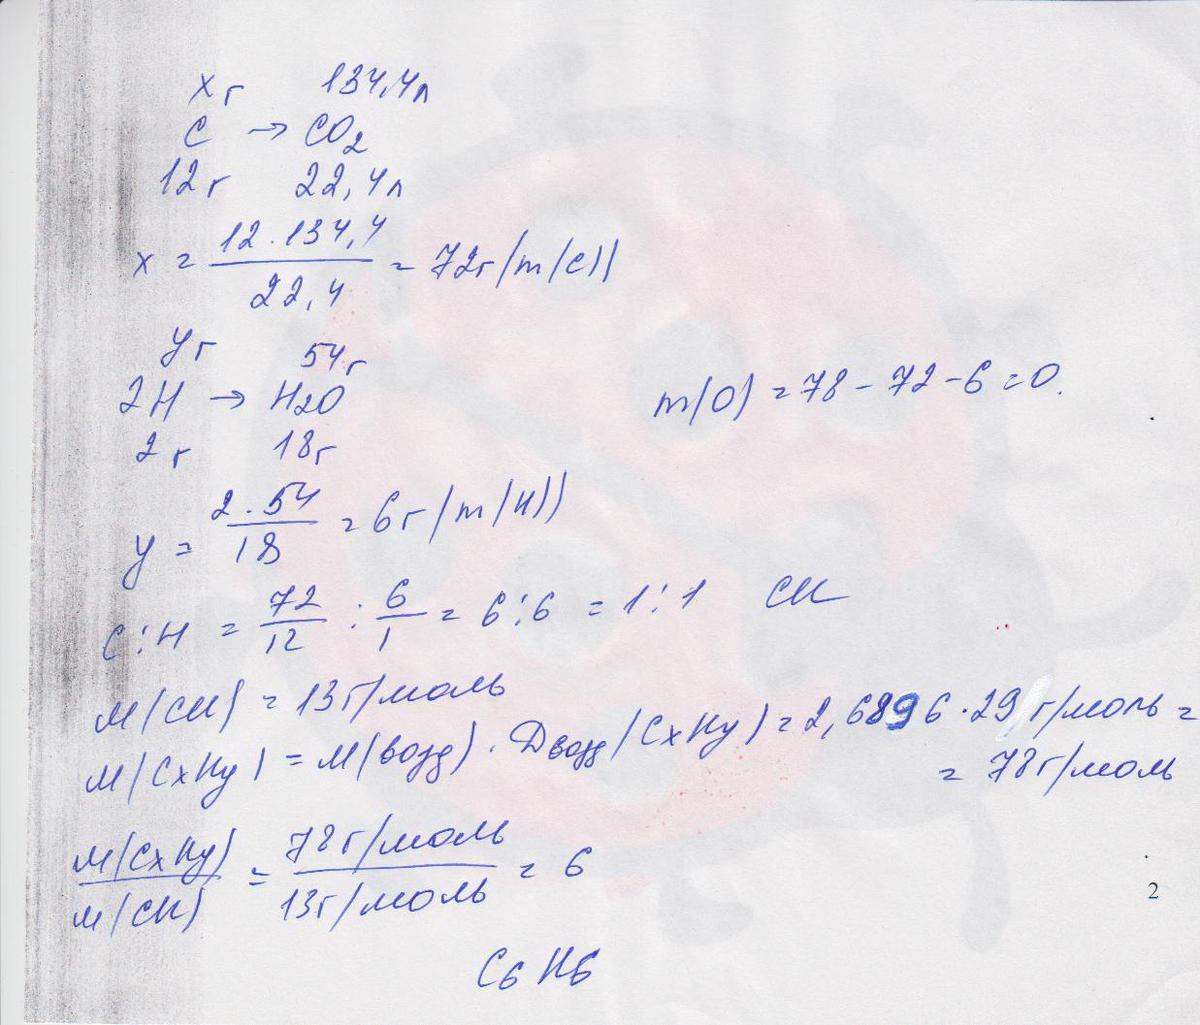 x г 134,4л
C → CO2
12г 22,4л
x = 12·134,4 / 22,4 = 72г (m(C))
y г 54г
2H → H2O
2 г 18г
m(O) = 78 - 72 - 6 = 0.
y = 2·54 / 18 = 6г (m(H))
C:H = 72/12 : 6/1 = 6:6 = 1:1 CH
M(CH) = 13г/моль
M(CxHy) = M(возд)·Dвозд(CxHy) = 2,6896·29 г/моль =
= 78г/моль
M(CxHy) / M(CH) = 78г/моль / 13г/моль = 6
2
C6H6